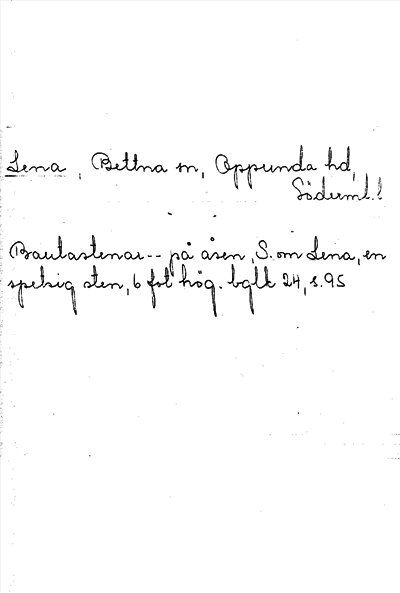 Lena, Bettna sn, Oppunda hd,
Söderml.l
Bautastenar -- på åsen, S. om Lena, en
spetsig sten, 6 fot hög. bglk 24, s. 95